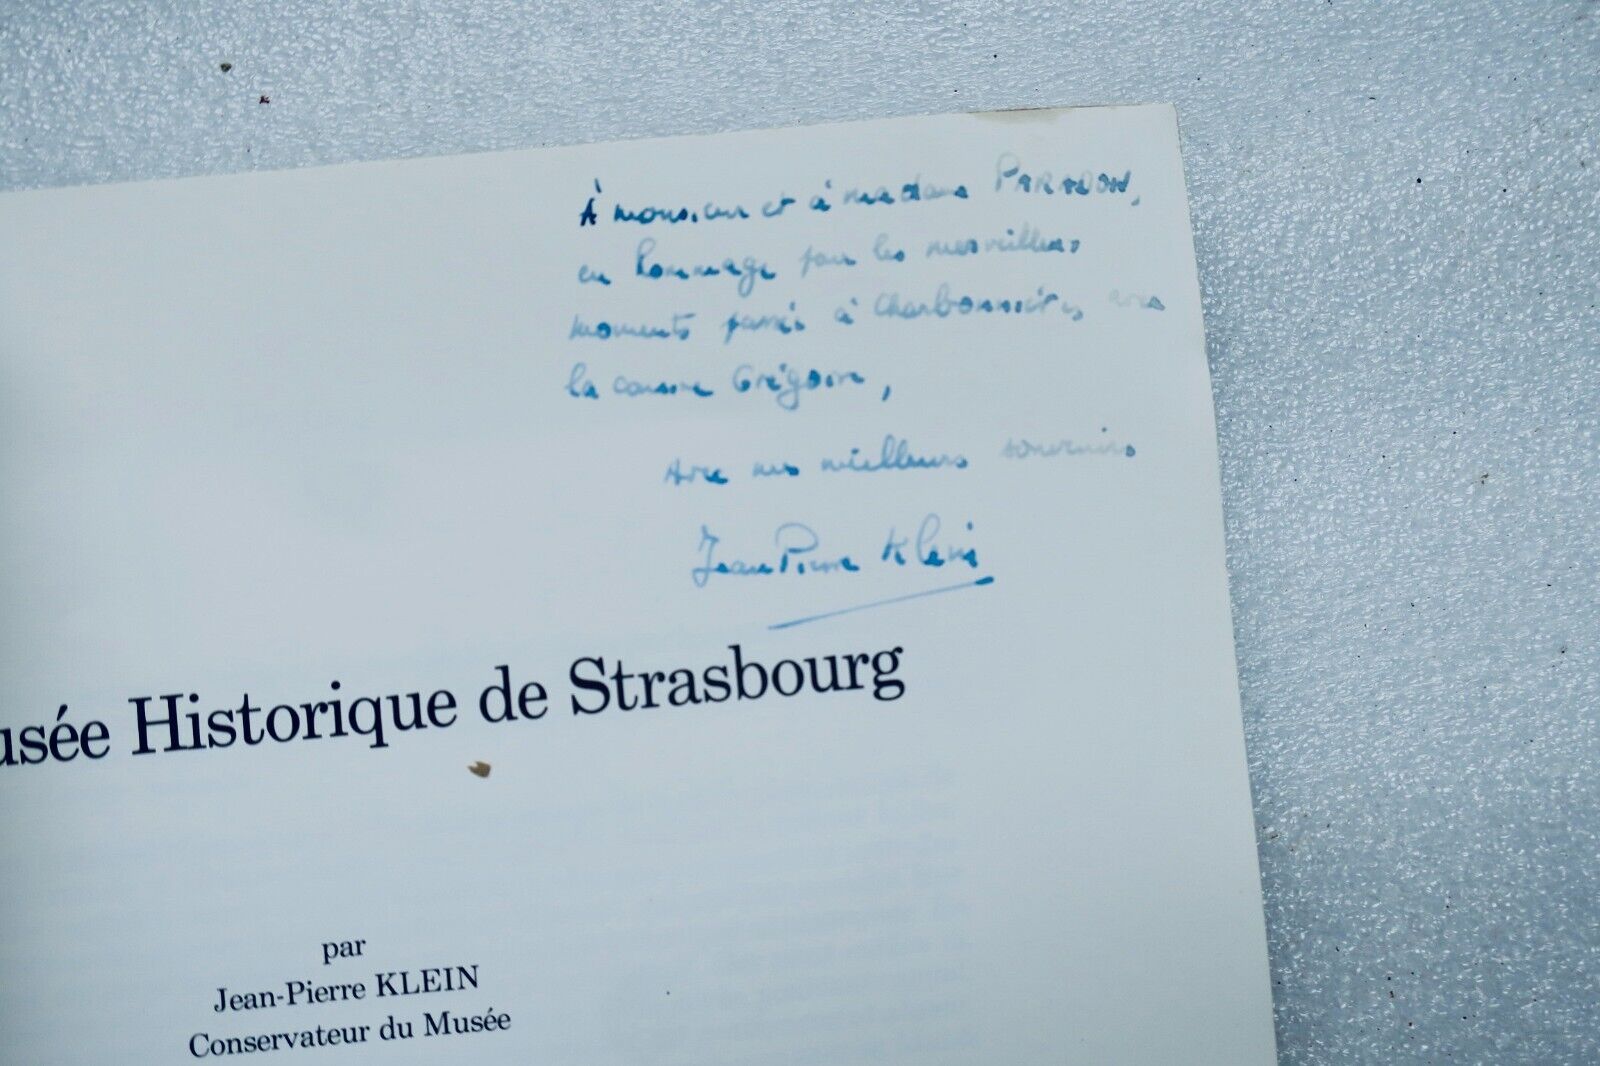 À monsieur et à madame PARADON,
en hommage pour les merveilleux
moments passés à Charbonnières, avec
la cousine Grégoire,
Avec mes meilleurs souvenirs
Jean Pierre Klein
usée Historique de Strasbourg
par
Jean-Pierre KLEIN
Conservateur du Musée